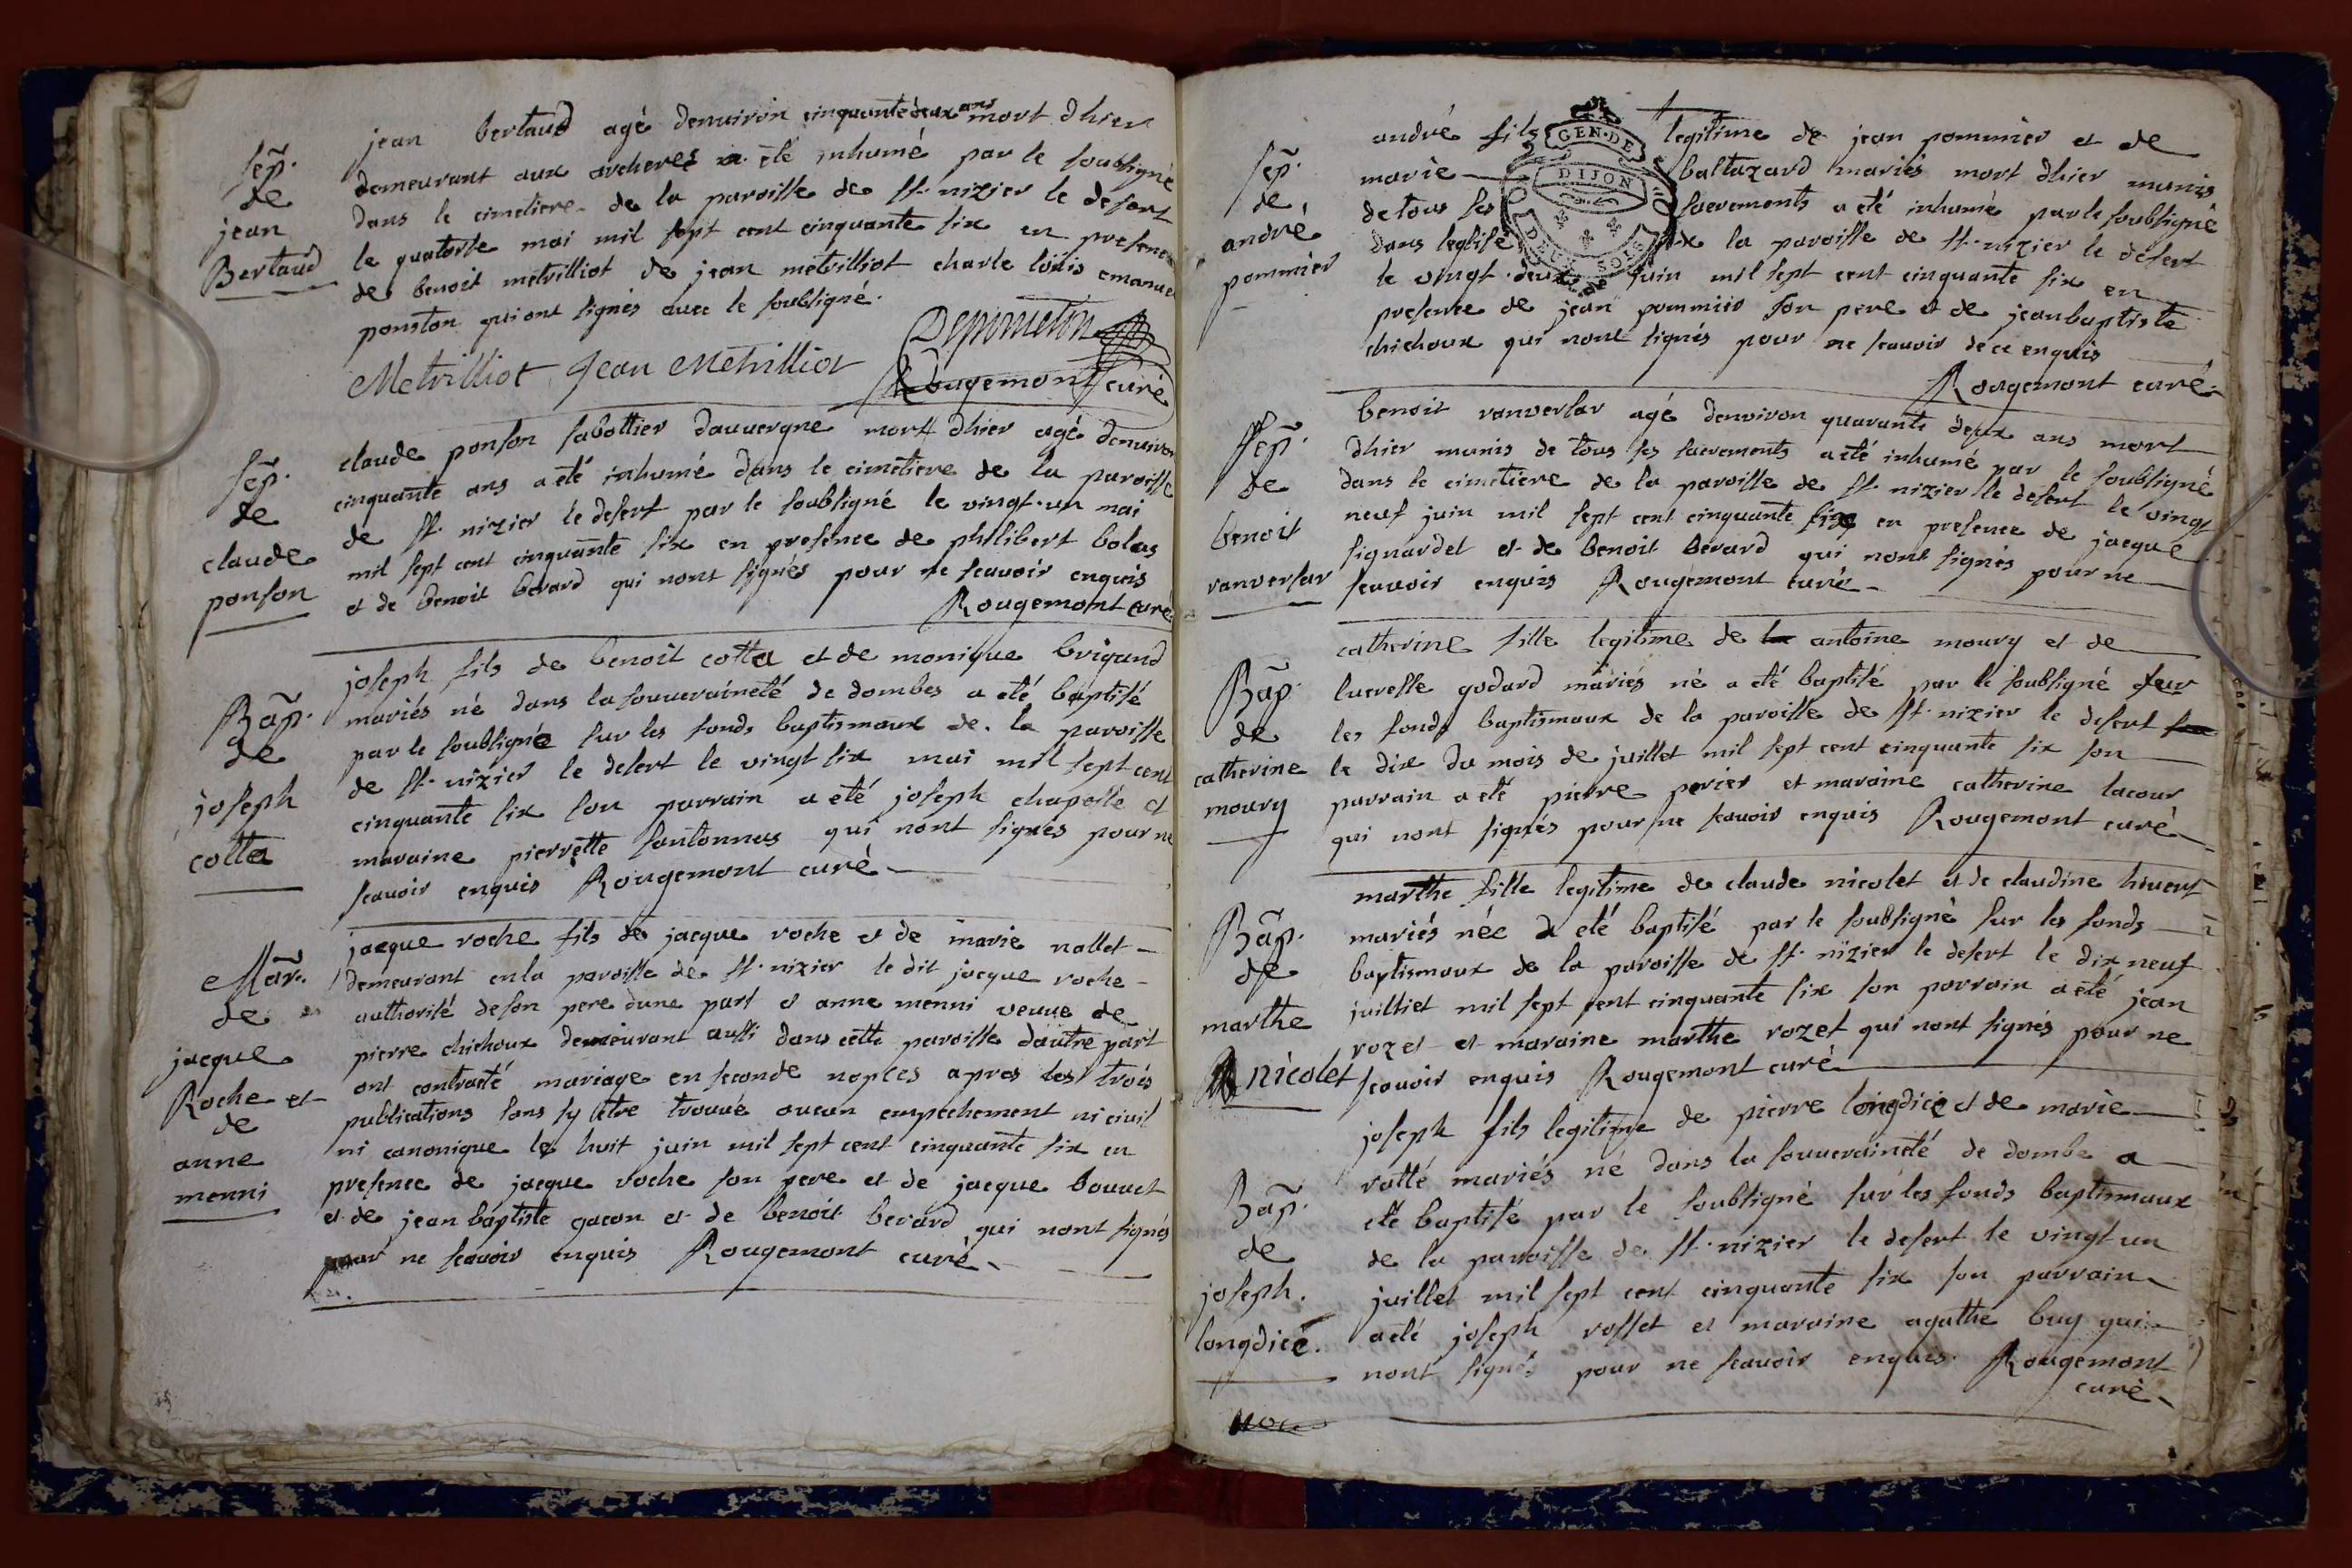 sep̃.
de
jean
Bertaud
jean bertaud agé denuiron cinquante deux ans mort dhier
demeurant aux archeres a été inhumé par le soubsigné
dans le cimetiere de la paroisse de st. nizier le desert
le quatorse mai mil sept cent cinquante six en presence
de benoit metvilliot de jean metvilliot charle loüis emanuel
ponston qui ont signés auec le soubsigné.
Metvilliot Jean Metvilliot
Rougemont curé
sep̃.
de
claude
ponson
claude ponson sabottier dauuergne mort dhier agé denuiron
cinquante ans a été inhumé dans le cimetiere de la paroisse
de st. nizier le desert par le soubsigné le vingt-un mai
mil sept cent cinquante six en presence de philibert bolas
et de benoit berard qui nont signés pour ne scauoir enquis
Rougemont curé
Bap̃.
de
joseph
cotta
joseph fils de benoit cotta et de monique brigand
mariés né dans la souueraineté de dombes a été baptisé
par le soubsigné sur les fonds baptismaux de la paroisse
de st. nizier le desert le vingt six mai mil sept cent
cinquante six son parrain a eté joseph chapelle et
maraine pierrette fontonnas qui nont signés pour ne
scauoir enquis Rougemont curé
Mar.
de
jacque
Roche et
de
anne
menni
jacque roche fils de jacque roche et de marie nallet
demeurant en la paroisse de st. nizier le dit jacque roche
authorisé de son pere dune part et anne menni veuue de
pierre chichoux demeurant aussi dans cette paroisse dautre part
ont contracté mariage en seconde nopces apres les trois
publications sans sy être trouué aucun empechement ni ciuil
ni canonique le huit juin mil sept cent cinquante six en
presence de jacque roche son pere et de jacque bouuet
et de jean baptiste gacon et de benoit berard qui nont signés
pour ne scauoir enquis Rougemont curé
sep̃.
de
andré
pommier
GEN. DE
DIJON
DEUX SOLS
andré fils legitime de jean pommier et de
marie baltazard mariés mort dhier munis
de tous ses sacrements a eté inhumé par le soubsigné
dans leglise de la paroisse de st. nizier le desert
le vingt-deux juin mil sept cent cinquante six en
presence de jean pommier son pere et de jean baptiste
chichoux qui nont signés pour ne scauoir de ce enquis
Rougemont curé
sep̃.
de
benoit
ranversar
benoit ranversar agé denviron quarante deux ans mort
dhier munis de tous ses sacrements a été inhumé par le soubsigné
dans le cimetiere de la paroisse de st. nizier le desert le vingt
neuf juin mil sept cent cinquante six en presence de jacque
signardet et de benoit berard qui nont signés pour ne
scauoir enquis Rougemont curé
Bap̃.
de
catherine
moury
catherine fille legitime de antoine moury et de
lucresse godard mariés né a eté baptisé par le soubsigné sur
les fonds baptismaux de la paroisse de st. nizier le desert
le dix du mois de juillet mil sept cent cinquante six son
parrain a eté pierre perier et maraine catherine lacour
qui nont signés pour ne scauoir enquis Rougemont curé
Bap̃.
de
marthe
nicolet
marthe fille legitime de claude nicolet et de claudine
mariés née a eté baptisé par le soubsigné sur les fonds
baptismaux de la paroisse de st. nizier le desert le dix neuf
juilliet mil sept cent cinquante six son parrain a eté jean
rozet et maraine marthe rozet qui nont signés pour ne
scauoir enquis Rougemont curé
Bap̃.
de
joseph.
longdice.
joseph fils legitime de pierre longdice et de marie
ratté mariés né dans la souueraineté de dombe a
eté baptisé par le soubsigné sur les fonds baptismaux
de la paroisse de st. nizier le desert le vingt un
juillet mil sept cent cinquante six son parrain
a eté joseph rosset et maraine agathe buy qui
nont signés pour ne scauoir enquis. Rougemont
curé